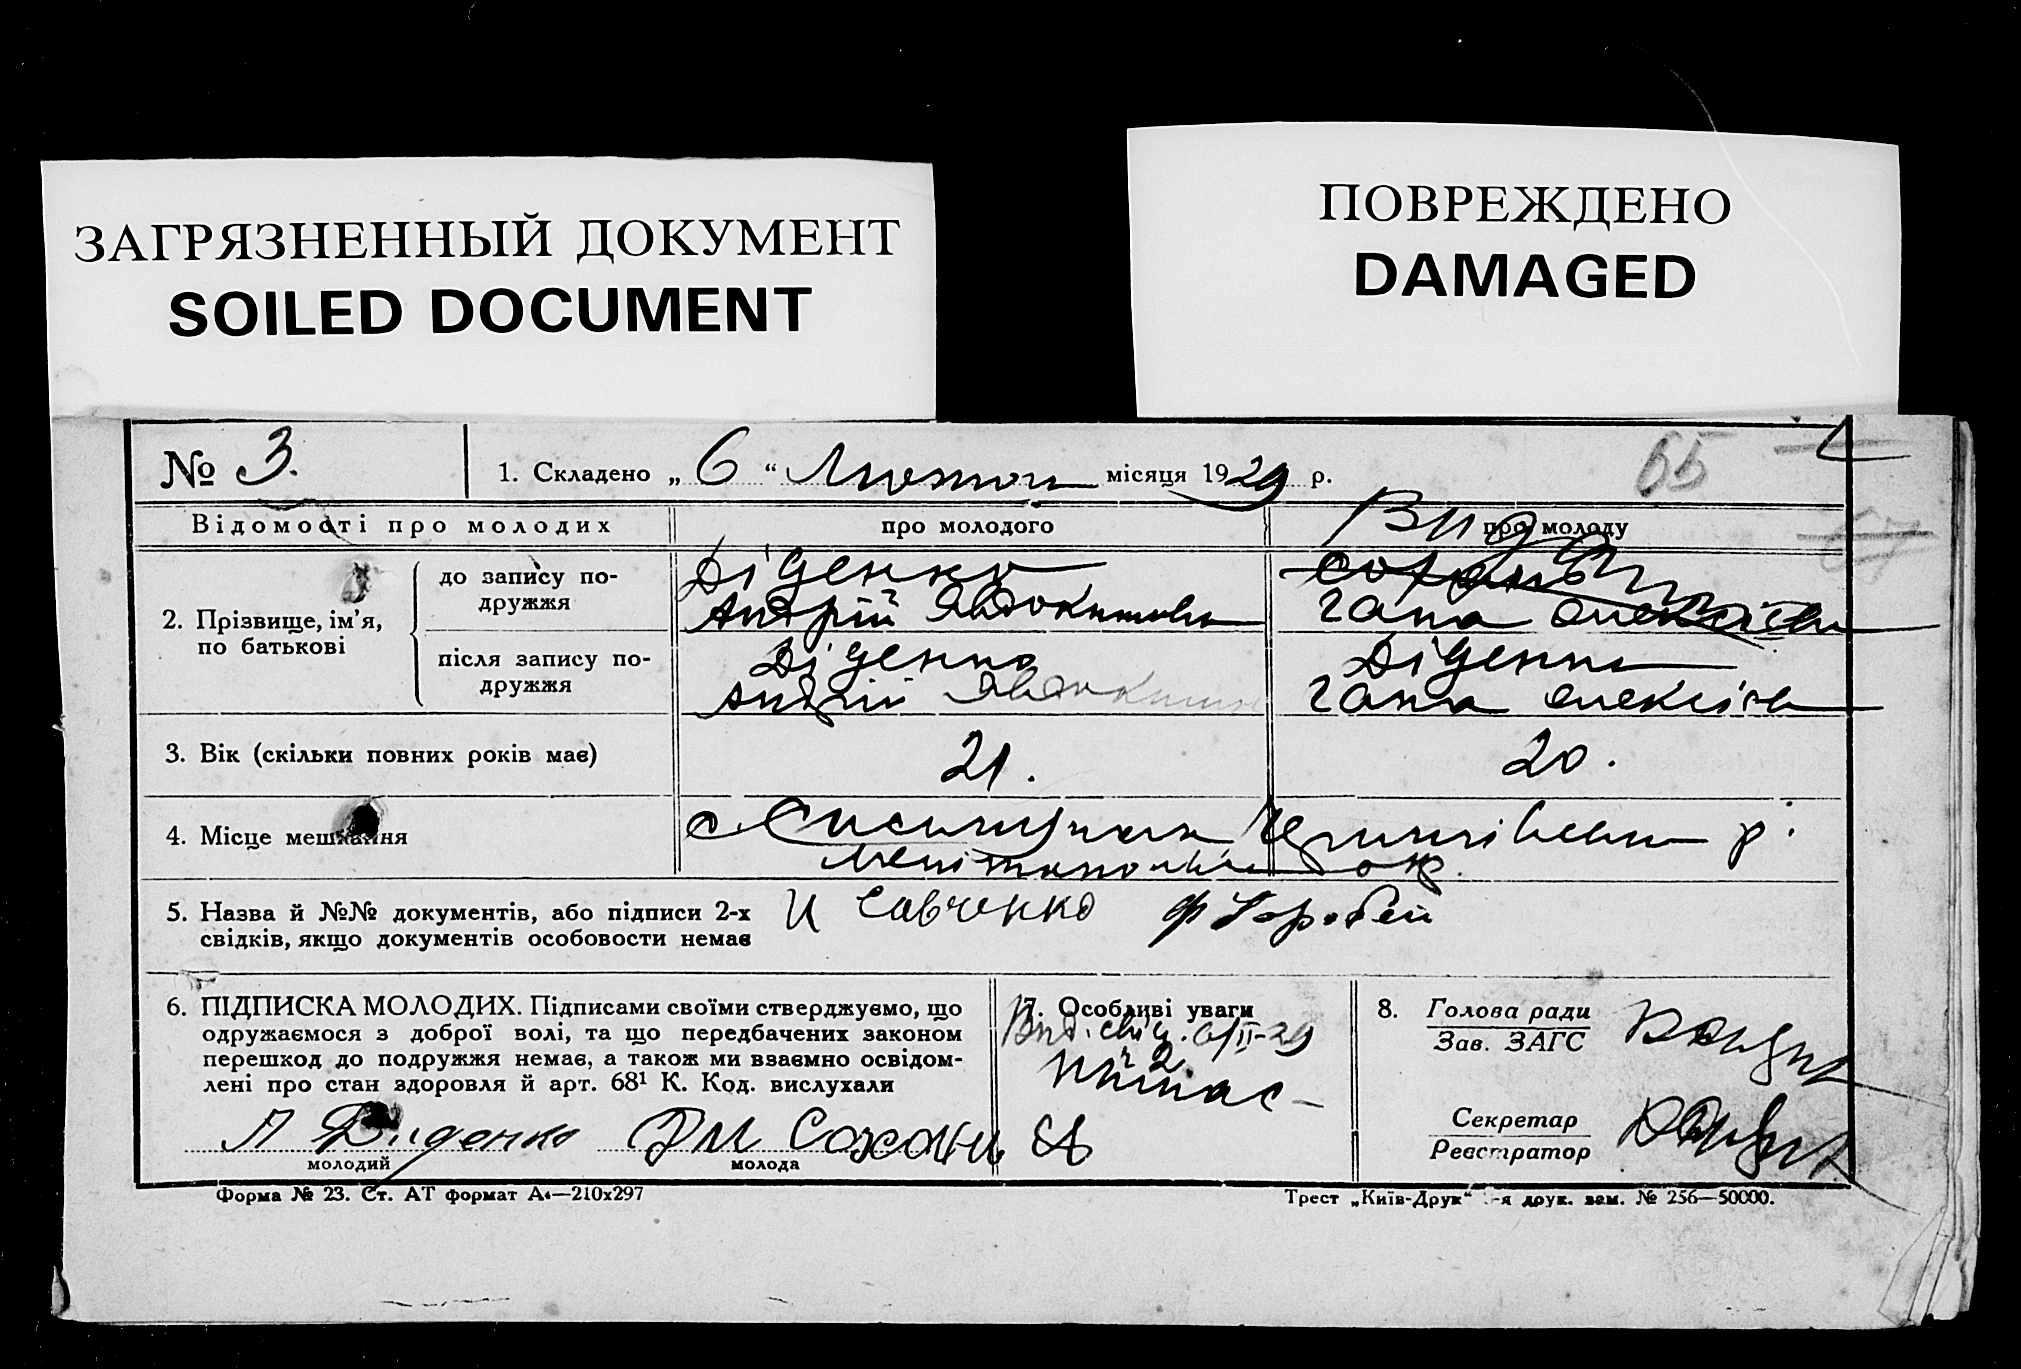 ЗАГРЯЗНЕННЫЙ ДОКУМЕНТ
SOILED DOCUMENT
ПОВРЕЖДЕНО
DAMAGED
№ 3.
1. Складено „ 6 “ Лютого місяця 1929 р.
65
Відомості про молодих
про молодого
про молоду
2. Прізвище, ім’я, по батькові
до запису по-
дружжя
Діденко
Андрій Явдокимови
Гапа Олексіевн
після запису по-
дружжя
Діденко
Андрій Явдокимов
Діденко
Гапа Олексіев
3. Вік (скільки повних років має)
21.
20.
4. Місце мешкання
с.
р.
Мелітопольськ окр.
5. Назва й №№ документів, або підписи 2-х
свідків, якщо документів особовости немає
И Савченко
Ф Горобей
6. ПІДПИСКА МОЛОДИХ. Підписами своїми стверджуємо, що
одружаємося з доброї волі, та що передбачених законом
перешкод до подружжя немає, а також ми взаємно освідом-
лені про стан здоровля й арт. 68¹ К. Код. вислухали
А Диденко
молодий
Сохань
молода
7. Особливі уваги
Вид. свід. 6/II-29
№ 2
8. Голова ради
Зав. ЗАГС
Секретар
Реєстратор
Форма № 23. Ст. АТ формат А4—210х297
Трест „Київ-Друк“ -я друк. зам. № 256—50000.